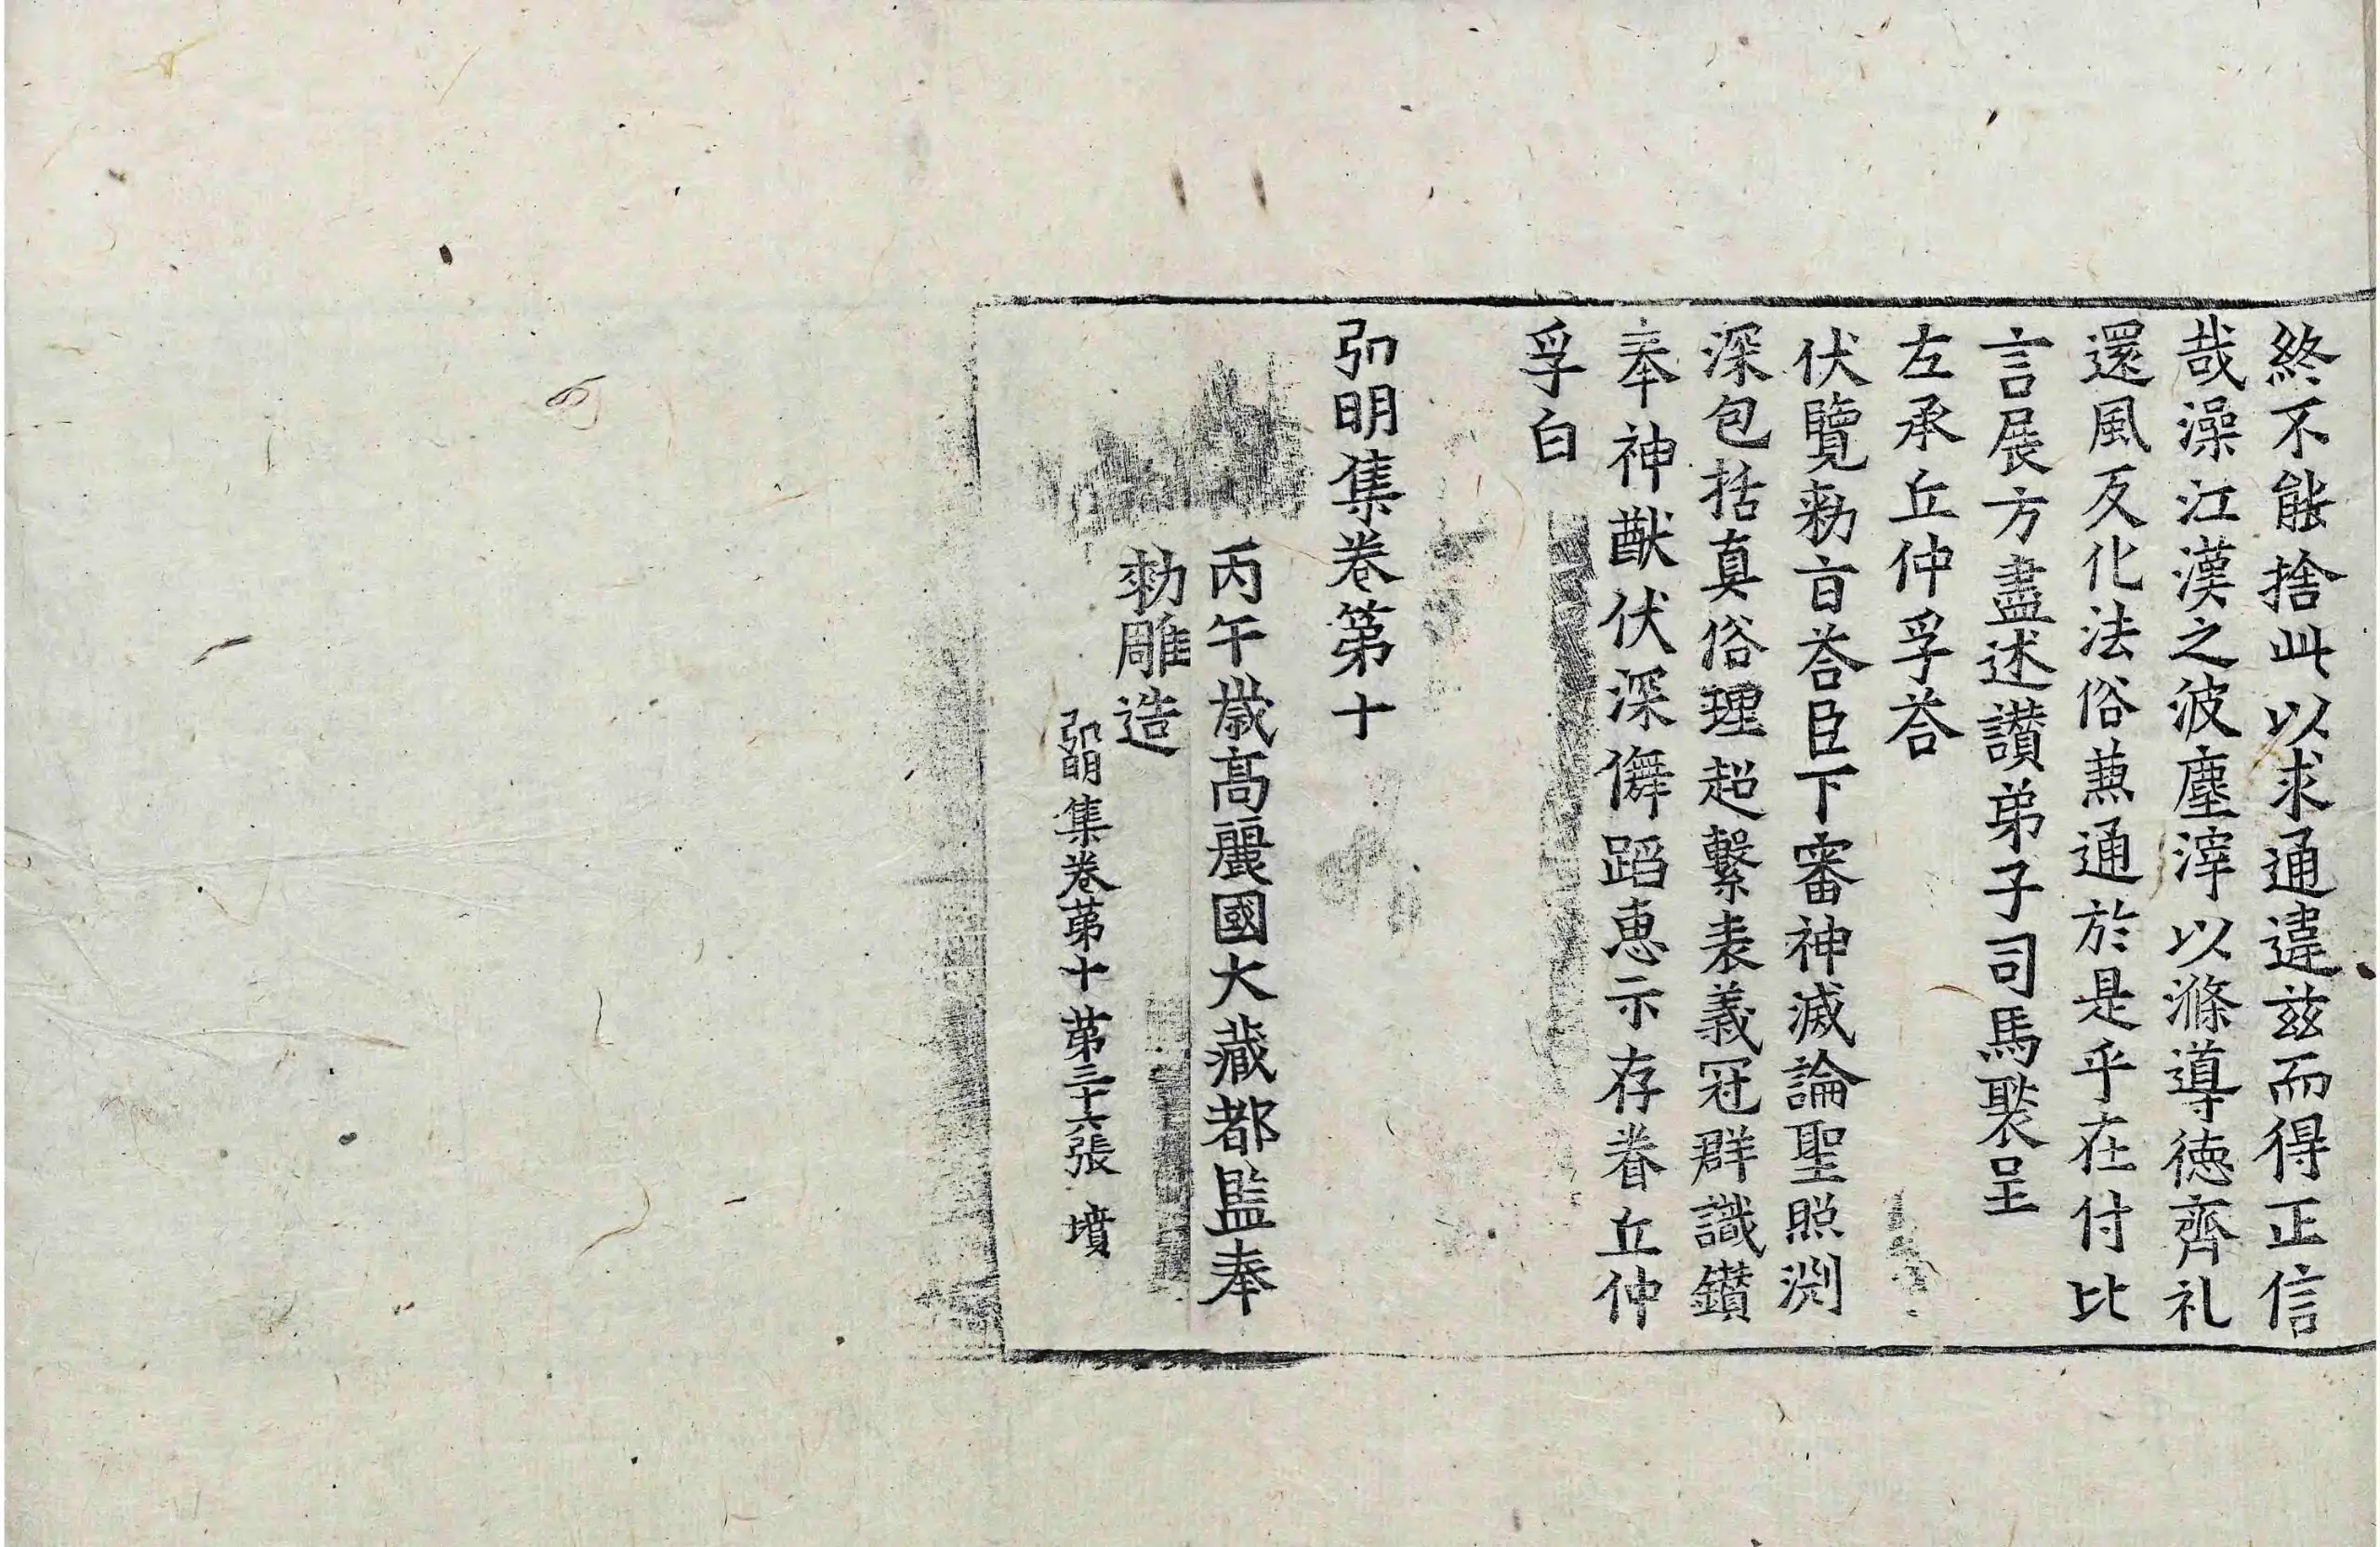 終不能捨此以求通違兹而得正信
哉澡江漢之波塵滓以滌導徳齊礼
還風反化法俗兼通於是乎在付比
言展方盡述讃弟子司馬褧呈
左承丘仲孚荅
伏覽勑旨荅臣下審神滅論聖照淵
深包括真俗理超繫表義冠群識鑚
奉神猷伏深儛蹈恵示存眷丘仲
孚白
弘明集卷第十
丙午歳高麗國大藏都監奉
勑雕造
弘明集卷第十 第三十六張 墳